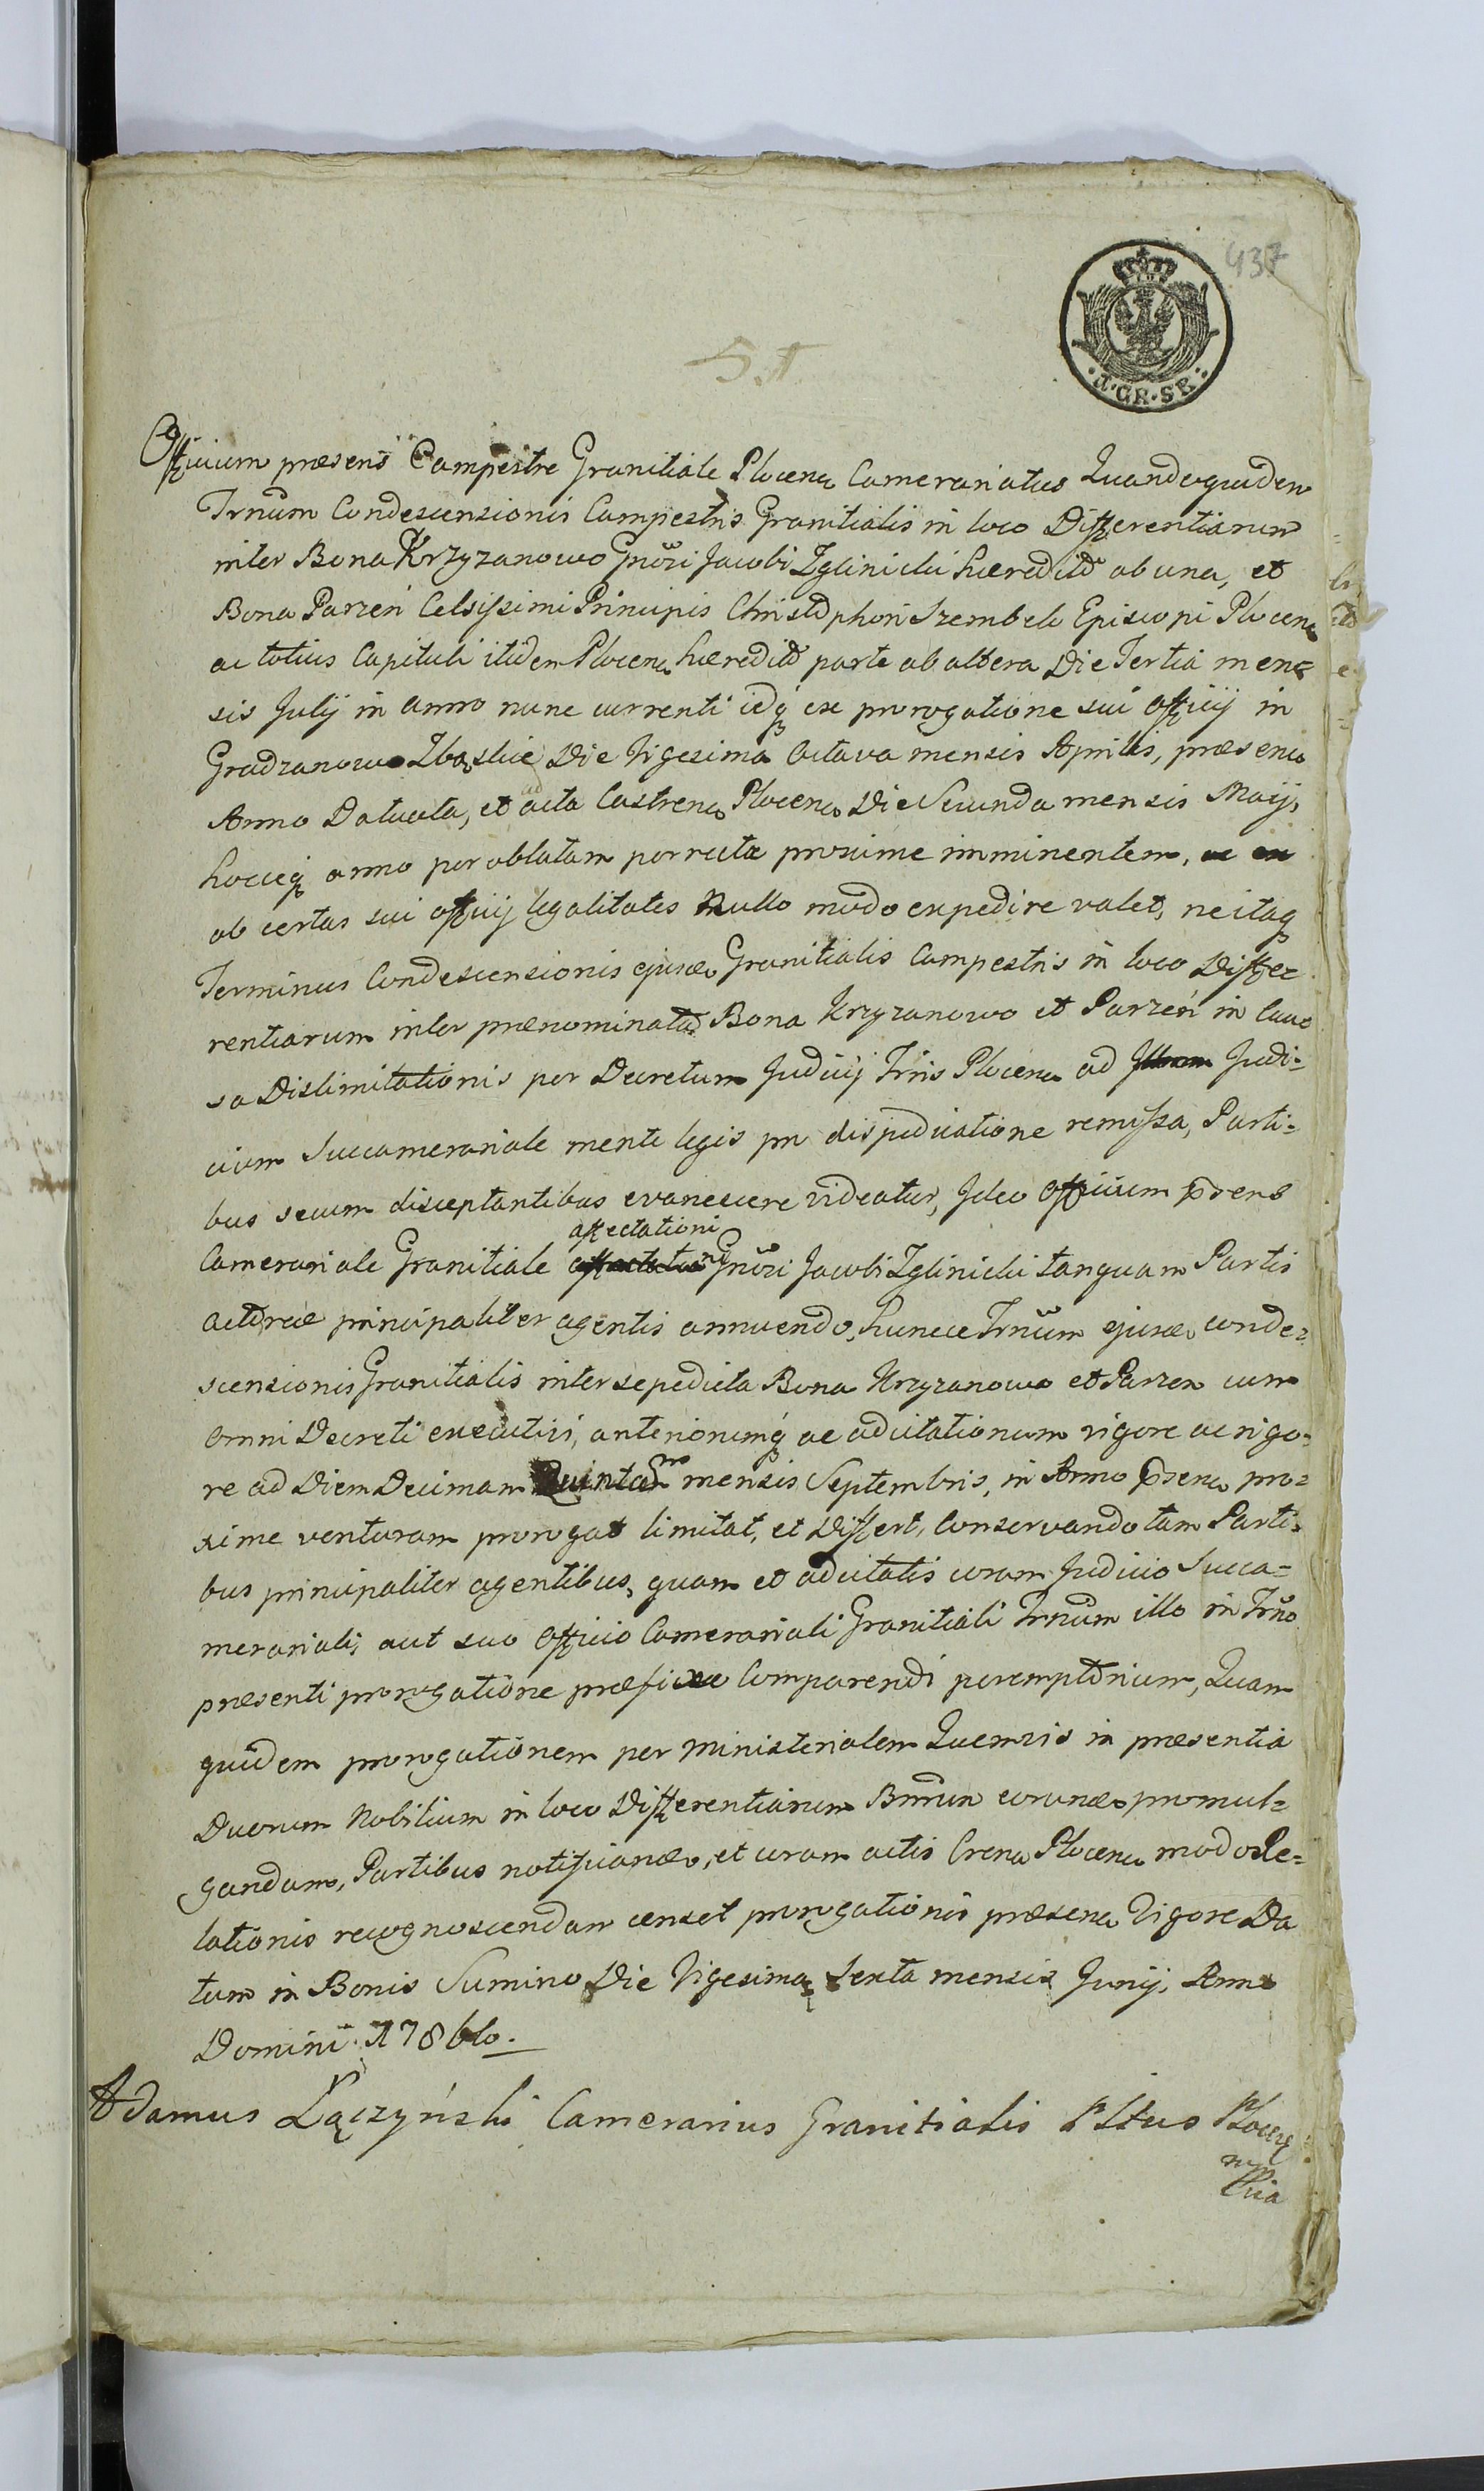 437
S.A.
·1·GR·SR·
Officium præsens Campestre Granitiale Plocen Camerariatus Quandoquidem
Trnum Condescensionis Campestris Granitialis in loco Differentiarum
inter Bona Krzyzanowo Gnosi Jacobi Zglinicki hæredit ab una, et
Bona Parzeń Celsissimi Principis Christophori Szembek Episcopi Plocen
ac totius Capituli itidem Plocen hæredit parte ab altera Die Tertia men=
sis July in anno nunc currenti idq ex prorogatione sui officij in
Gradzanowo Zbąskie Die Vigesima Octava mensis Aprilis, præsen
Anno Datvata, et ad acta Castren Plocen Die Secunda mensis Maij,
hocceq anno per oblatam porrectæ proxime imminentem,
ob certas sui officij legalitates Nullo modo expedire valet, ne itaq
Terminus Condescensionis ejusd Granitialis Campestris in loco Diffe=
rentiarum inter prænominata Bona Krzyzanowo et Parzeń in Cau
sa Dislimitationis per Decretum Judicij Trnis Plocen ad Judi=
cium Succamerariale mente legis pn disjudicatione remissa, Parti=
bus secum disceptantibus evanescere videatur, Ideo Officium psens
affectationi
Camerariale Granitiale Gnosi Jacobi Zglinicki tanquam Partis
actoreæ principaliter agentis annuendo, huncce Trnum ejusd conde=
scensionis Granitialis inter sepedicta Bona Krzyzanowo et Parzen cum
omni Decreti executivi, anteriorumq ac adcitationum vigore ac rigo=
re ad Diem Decimam Quintam mensis Septembris, in Anno psen pro=
xime venturam prorogat limitat, et Differt, Conservando tam Parti=
bus principaliter agentibus, quam et adcitatis coram Judicio Succa=
merariali, aut suo Officio Camerariali Granitiali Trnum illo in Trno
præsenti prorogatione præfixo Comparendi peremptorium, Quam
quidem prorogationem per Ministerialem Quemvis in præsentia
Duorum Nobilium in loco Differentiarum Bnrum eorund promul=
gandam, Partibus notificand, et coram actis Cren Plocen modo Re=
lationis recognoscendam censet prorogationis præsen Vigore Da
tum in Bonis Sumino Die Vigesima Sexta mensis Junij. Anno
Domini 1786to.
Adamus Łączyński Camerarius Granitialis Pltus Plocen
mpp